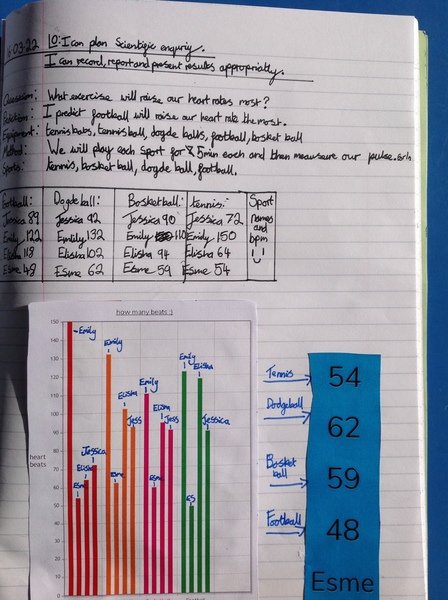 6.03.22 LO: I can plan Scientific enquiry.
I can record, report and present results appropriatly.
Question: What exercise will raise our heart rates most?
Prediction: I predict football will raise our heart rate the most.
Equipment: tennis bats, tennis ball, dogde balls, football, bosket ball
Method: We will play each Sport for 5min each and then meausure our pulse.
Sports: tennis, bosket ball, dogde ball, football.
Football: Dogdeball: Bosketball: tennis: Sport
Jessica 89 Jessica 92 Jessica 90 Jessica 72 names
Emily 122 Emtily 132 Emily 110 Emily 150 and
Elisha 118 Elisha 102 Elisha 94 Elisha 64 bpm
Esme 48 Esme 62 Esme 59 Esme 54
how many beats :)
150
140
130
120
110
100
90
80
70
60
50
40
30
20
10
0
heart
beats
Emily
Esme
Elisha
Jessica
Emily
Esme
Elisha
Jess
Emily
Esme
Elisha
Jess
Emily
Es
Elisha
Jessica
Tennis 54
Dodgeball 62
Bosket ball 59
Football 48
Esme